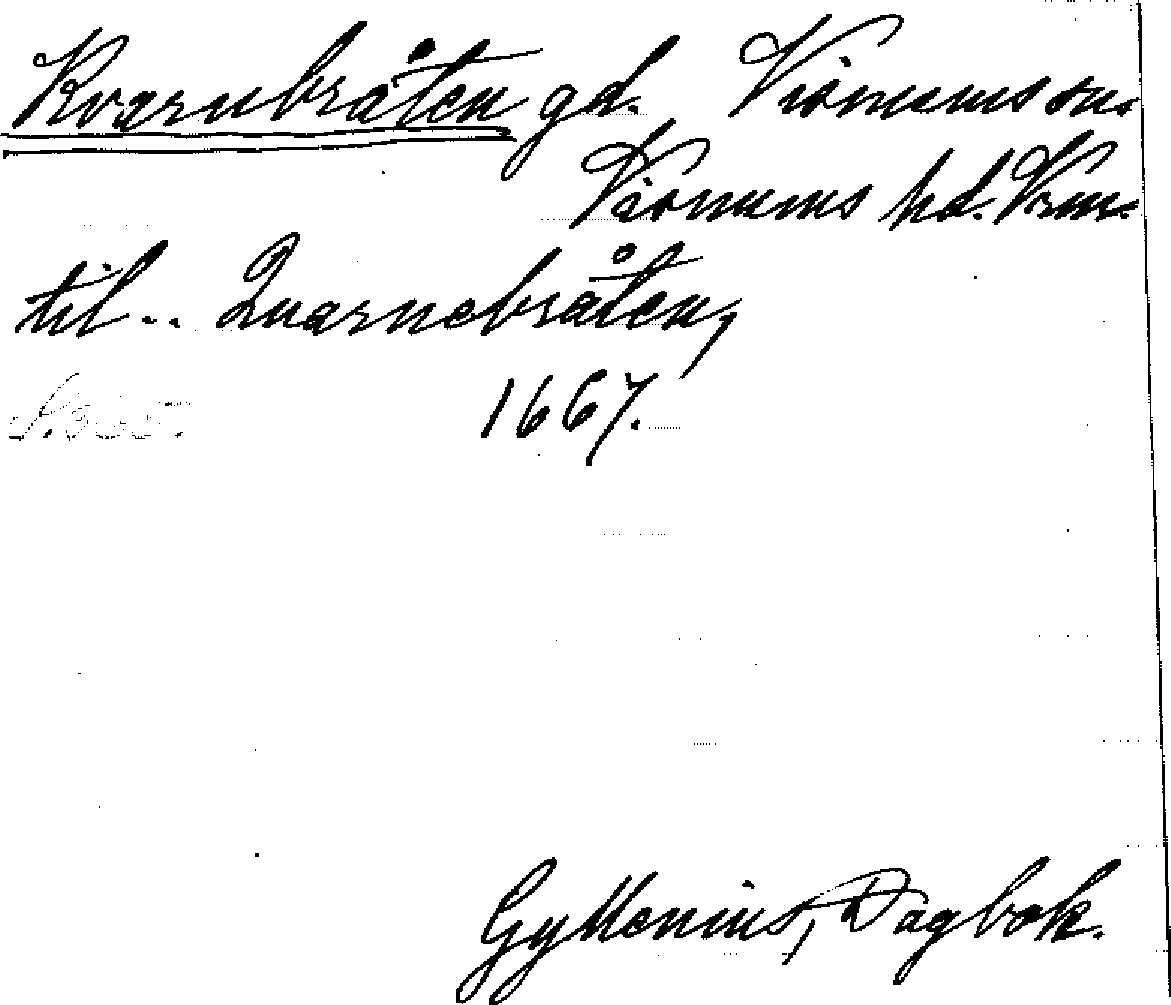 Kvarnbråten gd. Visnums sn.
Visnums hd. Vrm.
til .. Quarnebråten,
1667.
Gyllenius, Dagbok.